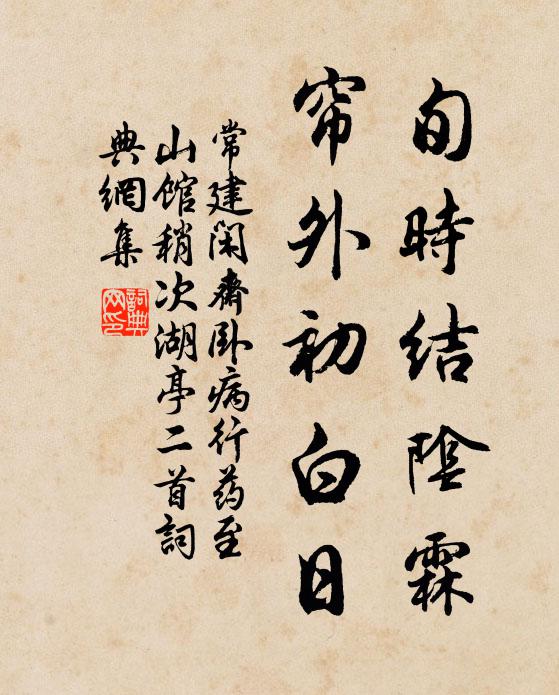 旬時結陰霖
帘外初白日
常建閑齋卧病行药至
山馆稍次湖亭二首詞
典網集
詞典网印